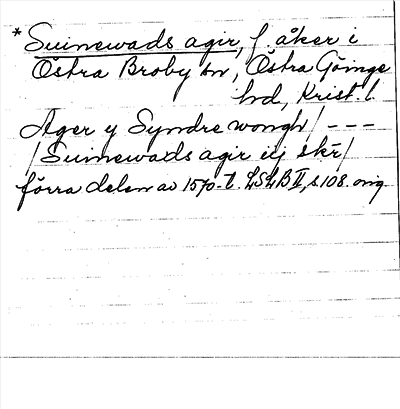 * Suinewads agir, f. åker i
Östra Broby sn, Östra Göinge
hd, Krist. l.
Ager y Syndre wongh / - - -
/ Suinewads agir iij skr /
förra delen av 1570-t. LSLB II, s. 108. orig.